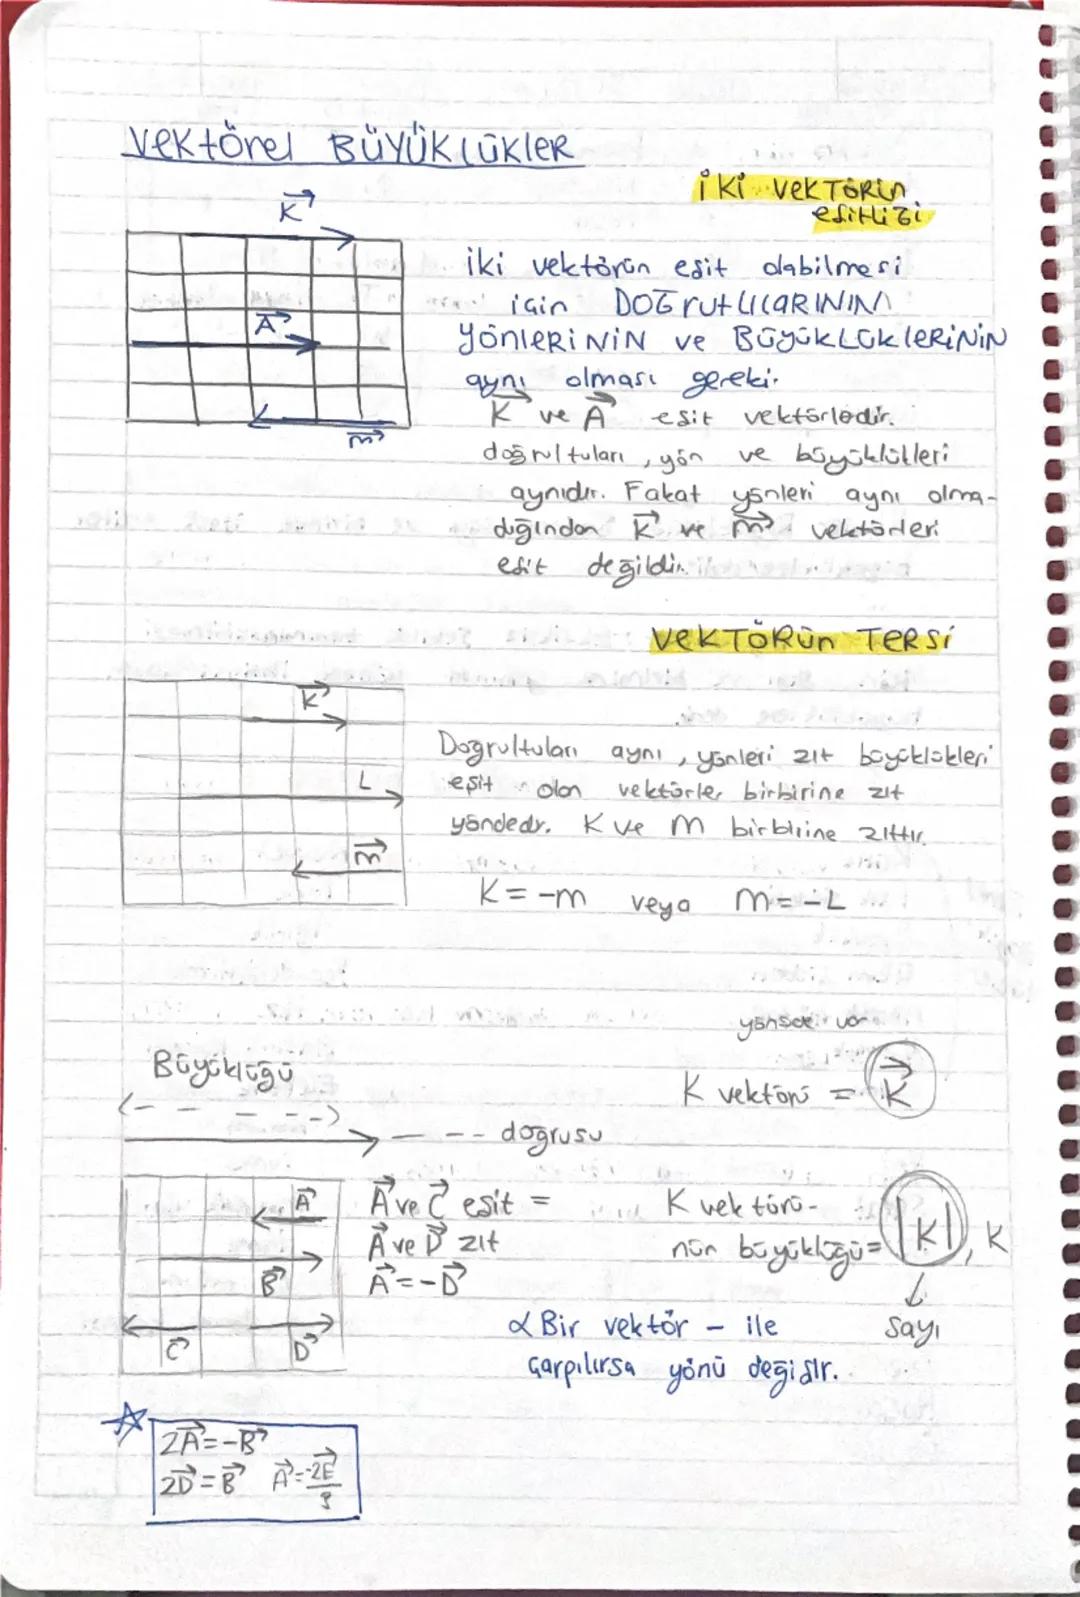 VEKTÖREL BÜYÜKLÜKLER
İKİ VEKTÖRÜN
EŞİTLİĞİ
K
A
m
İki vektörün eşit olabilmesi
için DOĞRUTLULARININ
YÖNLERİNİN ve BÜYÜKLÜKLERİNİN
aynı olması gereki.
K ve A eşit vektörledir.
doğrultuları, yön ve büyüklükleri
aynıdır. Fakat yönleri aynı olma-
dığından K ve m vektörleri
eşit değildir.
VEKTÖRÜN TERSİ
K
L
m
Doğrultuları aynı, yönleri zıt büyüklükleri
eşit olan vektörler birbirine zıt
yöndedir. K ve M birbirine zıttır.
K = -m veya m = -L
Büyüklüğü
doğrusu
yönsde var
K vektörü = K
A
B
C
D
A ve C eşit =
A ve D zıt
A = -D
K vektörü-
nün büyüklüğü = |K|, K
sayı
α Bir vektör - ile
çarpılırsa yönü değişir.
2A = -B
2D = B A = -2E/3